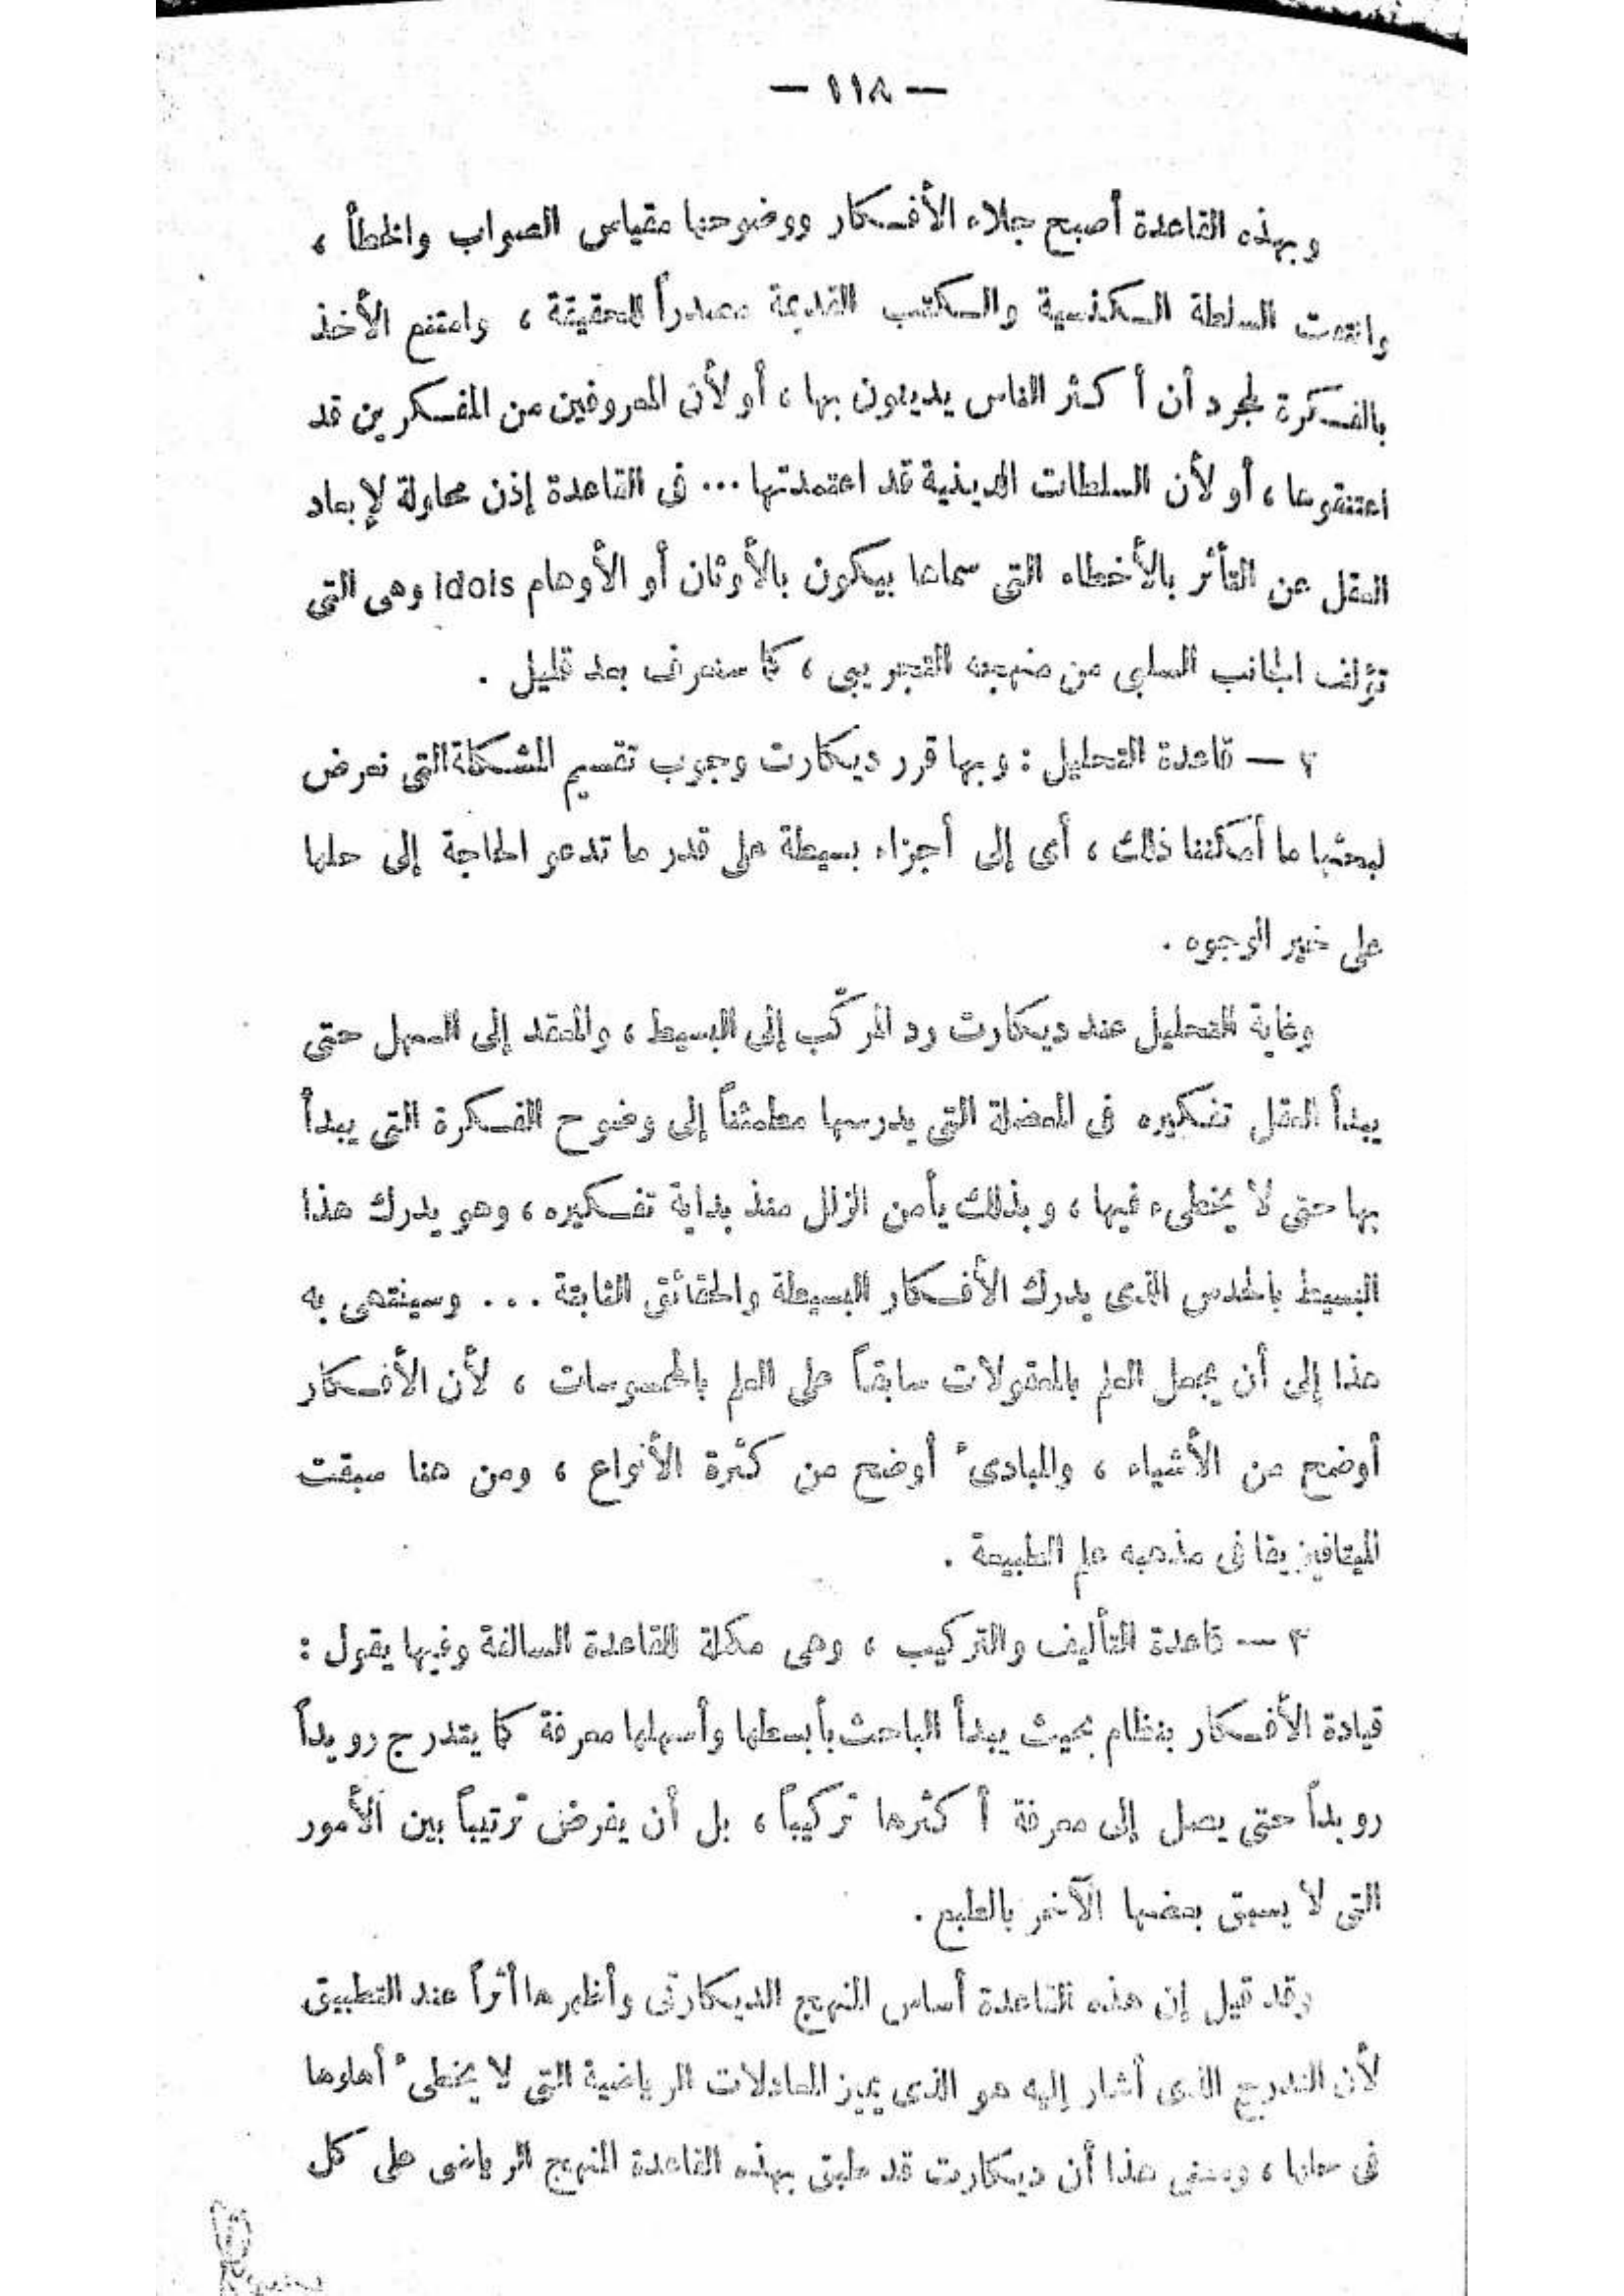 — ١١٨ —
وبهذه القاعدة أصبح جلاء الأفكار ووضوحها مقياس الصواب والخطأ ،
وانتفت السلطة الكنسية والكتب القديمة مصدراً للحقيقة ، وامتنع الأخذ
بالفكرة لمجرد أن أكثر الناس يدينون بها ، أو لأن المعروفين من المفكرين قد
اعتنقوها ، أو لأن السلطات الدينية قد اعتمدتها ... فى القاعدة إذن محاولة لإبعاد
العقل عن التأثر بالأخطاء التى سماها بيكون بالأوثان أو الأوهام idols وهى التى
تؤلف الجانب السلبى من منهجه التجريبى ، كما سنعرف بعد قليل .
٢ — قاعدة التحليل : وبها قرر ديكارت وجوب تقسيم المشكلة التى نعرض
لبحثها ما أمكننا ذلك ، أى إلى أجزاء بسيطة على قدر ما تدعو الحاجة إلى حلها
على خير الوجوه .
وغاية التحليل عند ديكارت رد المركّب إلى البسيط ، والمعقد إلى السهل حتى
يبدأ العقل تفكيره فى المعضلة التى يدرسها مطمئناً إلى وضوح الفكرة التى يبدأ
بها حتى لا يخطىء فيها ، وبذلك يأمن الزلل منذ بداية تفكيره ، وهو يدرك هذا
البسيط بالحدس الذى يدرك الأفكار البسيطة والحقائق الثابتة ... وسينتهى به
هذا إلى أن يجعل العلم بالمعقولات سابقاً على العلم بالمحسوسات ، لأن الأفكار
أوضح من الأشياء ، والمبادىء أوضح من كثرة الأنواع ، ومن هنا سبقت
الميتافيزيقا فى مذهبه علم الطبيعة .
٣ — قاعدة التأليف والتركيب ، وهى مكملة للقاعدة السالفة وفيها يقول :
قيادة الأفكار بنظام بحيث يبدأ الباحث بأبسطها وأسهلها معرفة كما يتدرج رويداً
رويداً حتى يصل إلى معرفة أكثرها تركيباً ، بل أن يفرض ترتيباً بين الأمور
التى لا يسبق بعضها الآخر بالطبع .
وقد قيل إن هذه القاعدة أساس المنهج الديكارتى وأظهرها أثراً عند التطبيق
لأن التدرج الذى أشار إليه هو الذى يميز المعادلات الرياضية التى لا يخطىء أهلوها
فى حلها ، ومعنى هذا أن ديكارت قد طبق بهذه القاعدة المنهج الرياضى على كل